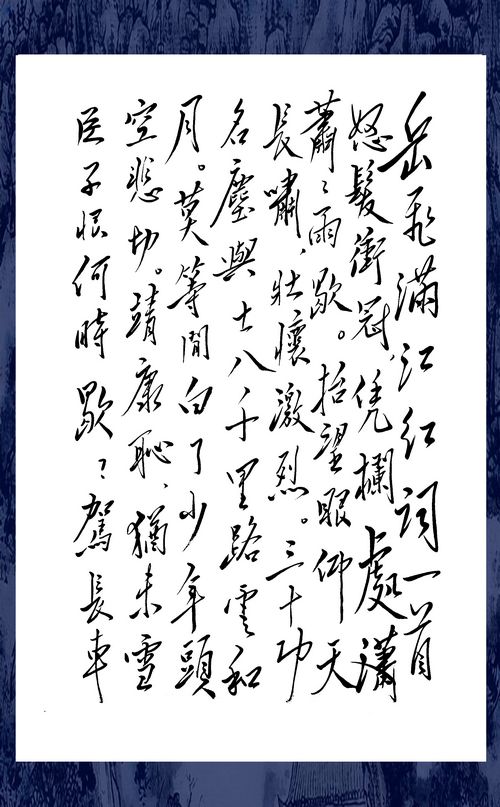 岳飛滿江紅詞一首
怒髮衝冠，凭欄處瀟
蕭〻雨歇。抬望眼仰天
長嘯，壯懷激烈。三十功
名塵與土八千里路雲和
月。莫等閒白了少年頭
空悲切。靖康恥、猶未雪
臣子恨何時歇〻駕長車